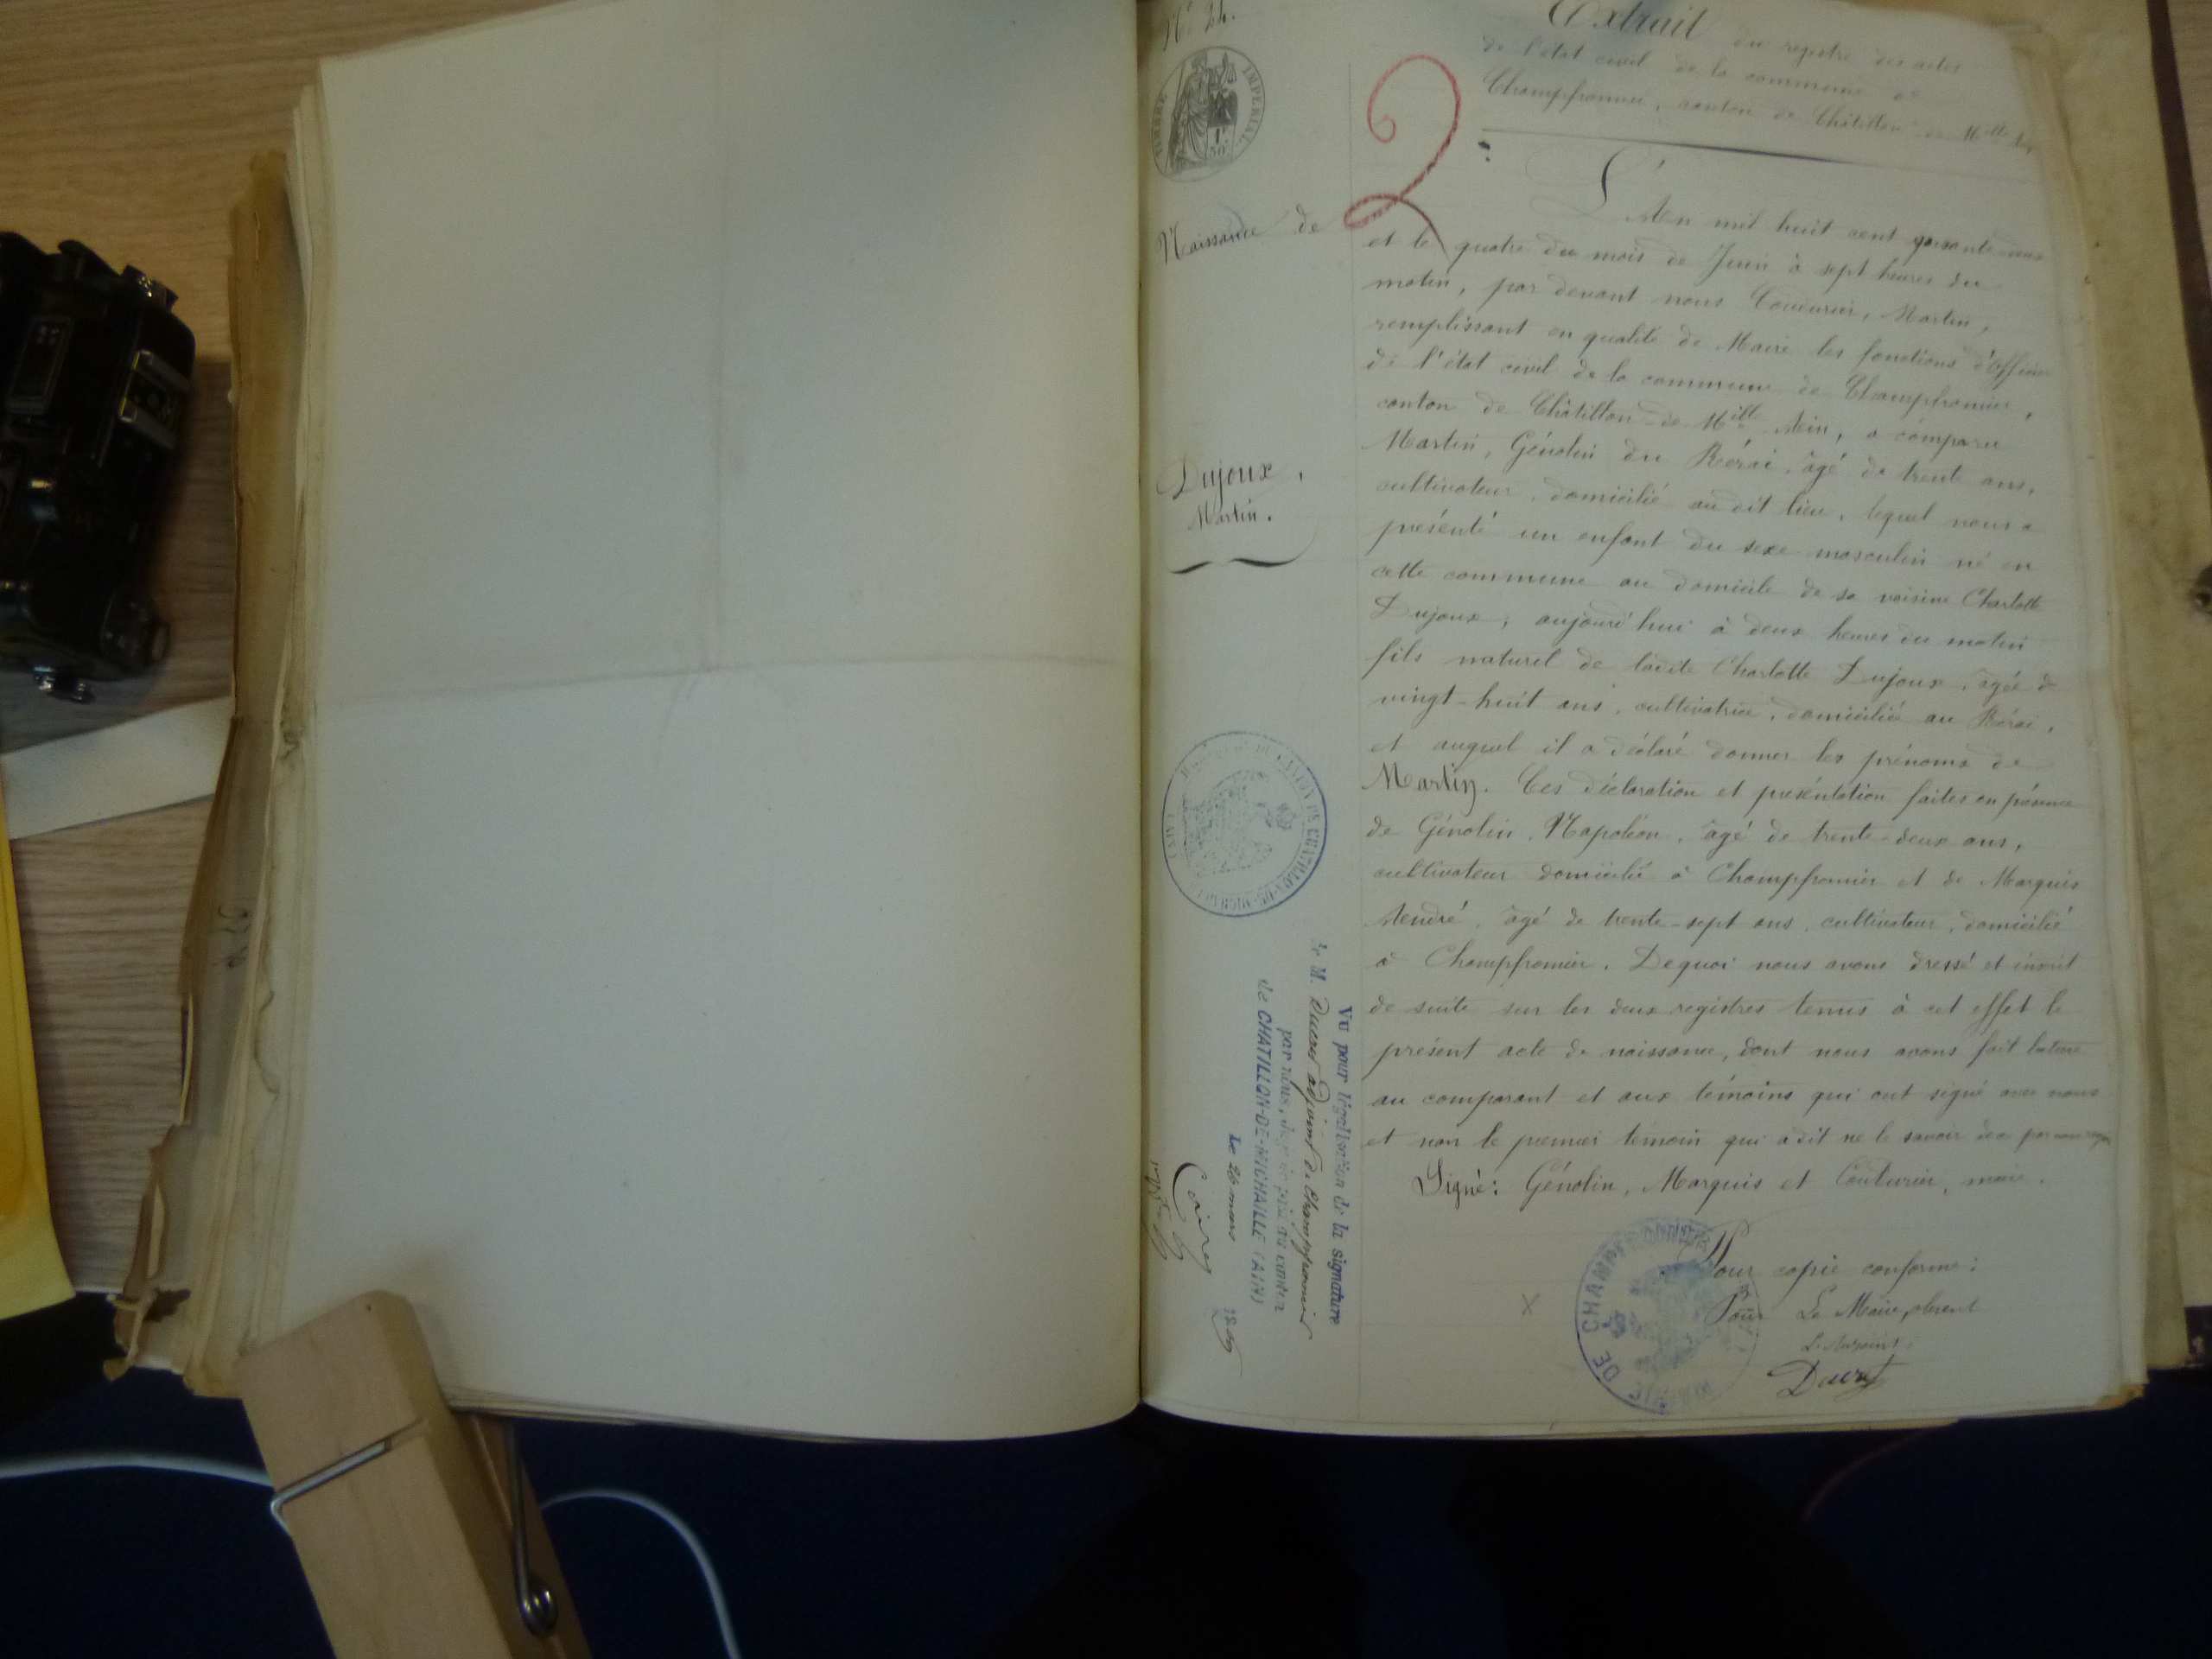 N° 24.
TIMBRE IMPERIAL
1F 50c
Extrait du registre des actes
de l'état civil de la commune de
Champfromier, canton de Châtillon de Mlle Ain
Naissance de
Dujoux,
Martin.
2
L'An mil huit cent
et le quatre du mois de Juin à sept heures du
matin, par devant nous Couturier, Martin,
remplissant en qualité de Maire les fonctions d'officier
de l'état civil de la commune de Champfromier,
canton de Châtillon-de-Mille Ain, a comparu
Martin, Génolin du Bérai, âgé de trente ans,
cultivateur, domicilié au dit lieu, lequel nous a
présenté un enfant du sexe masculin né en
cette commune au domicile de sa voisine Charlotte
Dujoux, aujourd'hui à deux heures du matin
fils naturel de ladite Charlotte Dujoux, âgée de
vingt-huit ans, cultivatrice, domiciliée au Bérai,
et auquel il a déclaré donner les prénoms de
Martin. Ces déclaration et présentation faites en présence
de Génolin, Napoléon, âgé de trente-deux ans,
cultivateur domicilié à Champfromier et de Marquis
André, âgé de trente-sept ans, cultivateur, domicilié
à Champfromier. De quoi nous avons dressé et inscrit
de suite sur les deux registres tenus à cet effet le
présent acte de naissance, dont nous avons fait lecture
au comparant et aux témoins qui ont signé avec nous
et non le premier témoin qui a dit ne le savoir de ce
Signé: Génolin, Marquis et Couturier, maire.
Pour copie conforme:
Pour Le Maire, absent
L'adjoint
Ducret
MAIRIE DE CHAMPFROMIER
DU CANTON DE CHATILLON-DE-MICHAILLE
Vu pour légalisation de la signature
de M. Ducret adjoint de Champfromier
par nous, juge de paix du canton
de CHATILLON-DE-MICHAILLE (AIN)
Le 26 mars